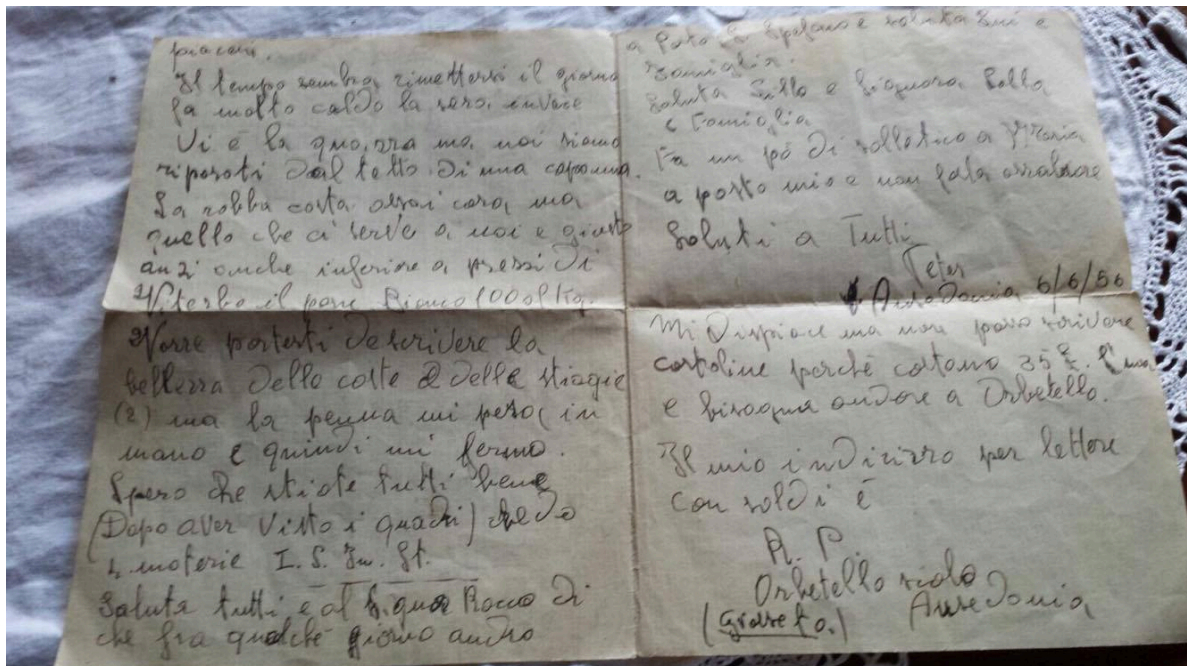 piaceri.
Il tempo sembra rimettersi il giorno
fa molto caldo la sera invece
Vi è la guazza ma noi siamo
riparati dal tetto di una capanna.
La robba costa assai cara, ma
quello che ci serve a noi e giusto
anzi anche inferiore a prezzi di
Viterbo il pane Bianco 100 al Kg.
Vorre poterti descrivere la
bellezza delle coste e delle spiagie
(2) ma la penna mi pesa in
mano e quindi mi fermo.
Spero che stiate tutti bene
(Dopo aver visto i quadri) che do
4 materie I. S. Fr. St.
Saluta tutti e al Signor Rocco di
che fra qualche giorno andro
a Porto S. Stefano e saluta
Famiglia.
Saluta Lillo e Signora Lella
e Famiglia
Fa un pò di solletico a Maria
a posto mio e non farla arrabiare
Saluti a Tutti
Peter
Ansedonia 6/6/56
Mi dispiace ma non posso scrivere
cartoline perché costano 35 £. l'una
e bisogna andare a Orbetello.
Il mio indirizzo per lettere
con soldi è
R. P.
Orbetello scalo
Ansedonia
(Grosseto.)